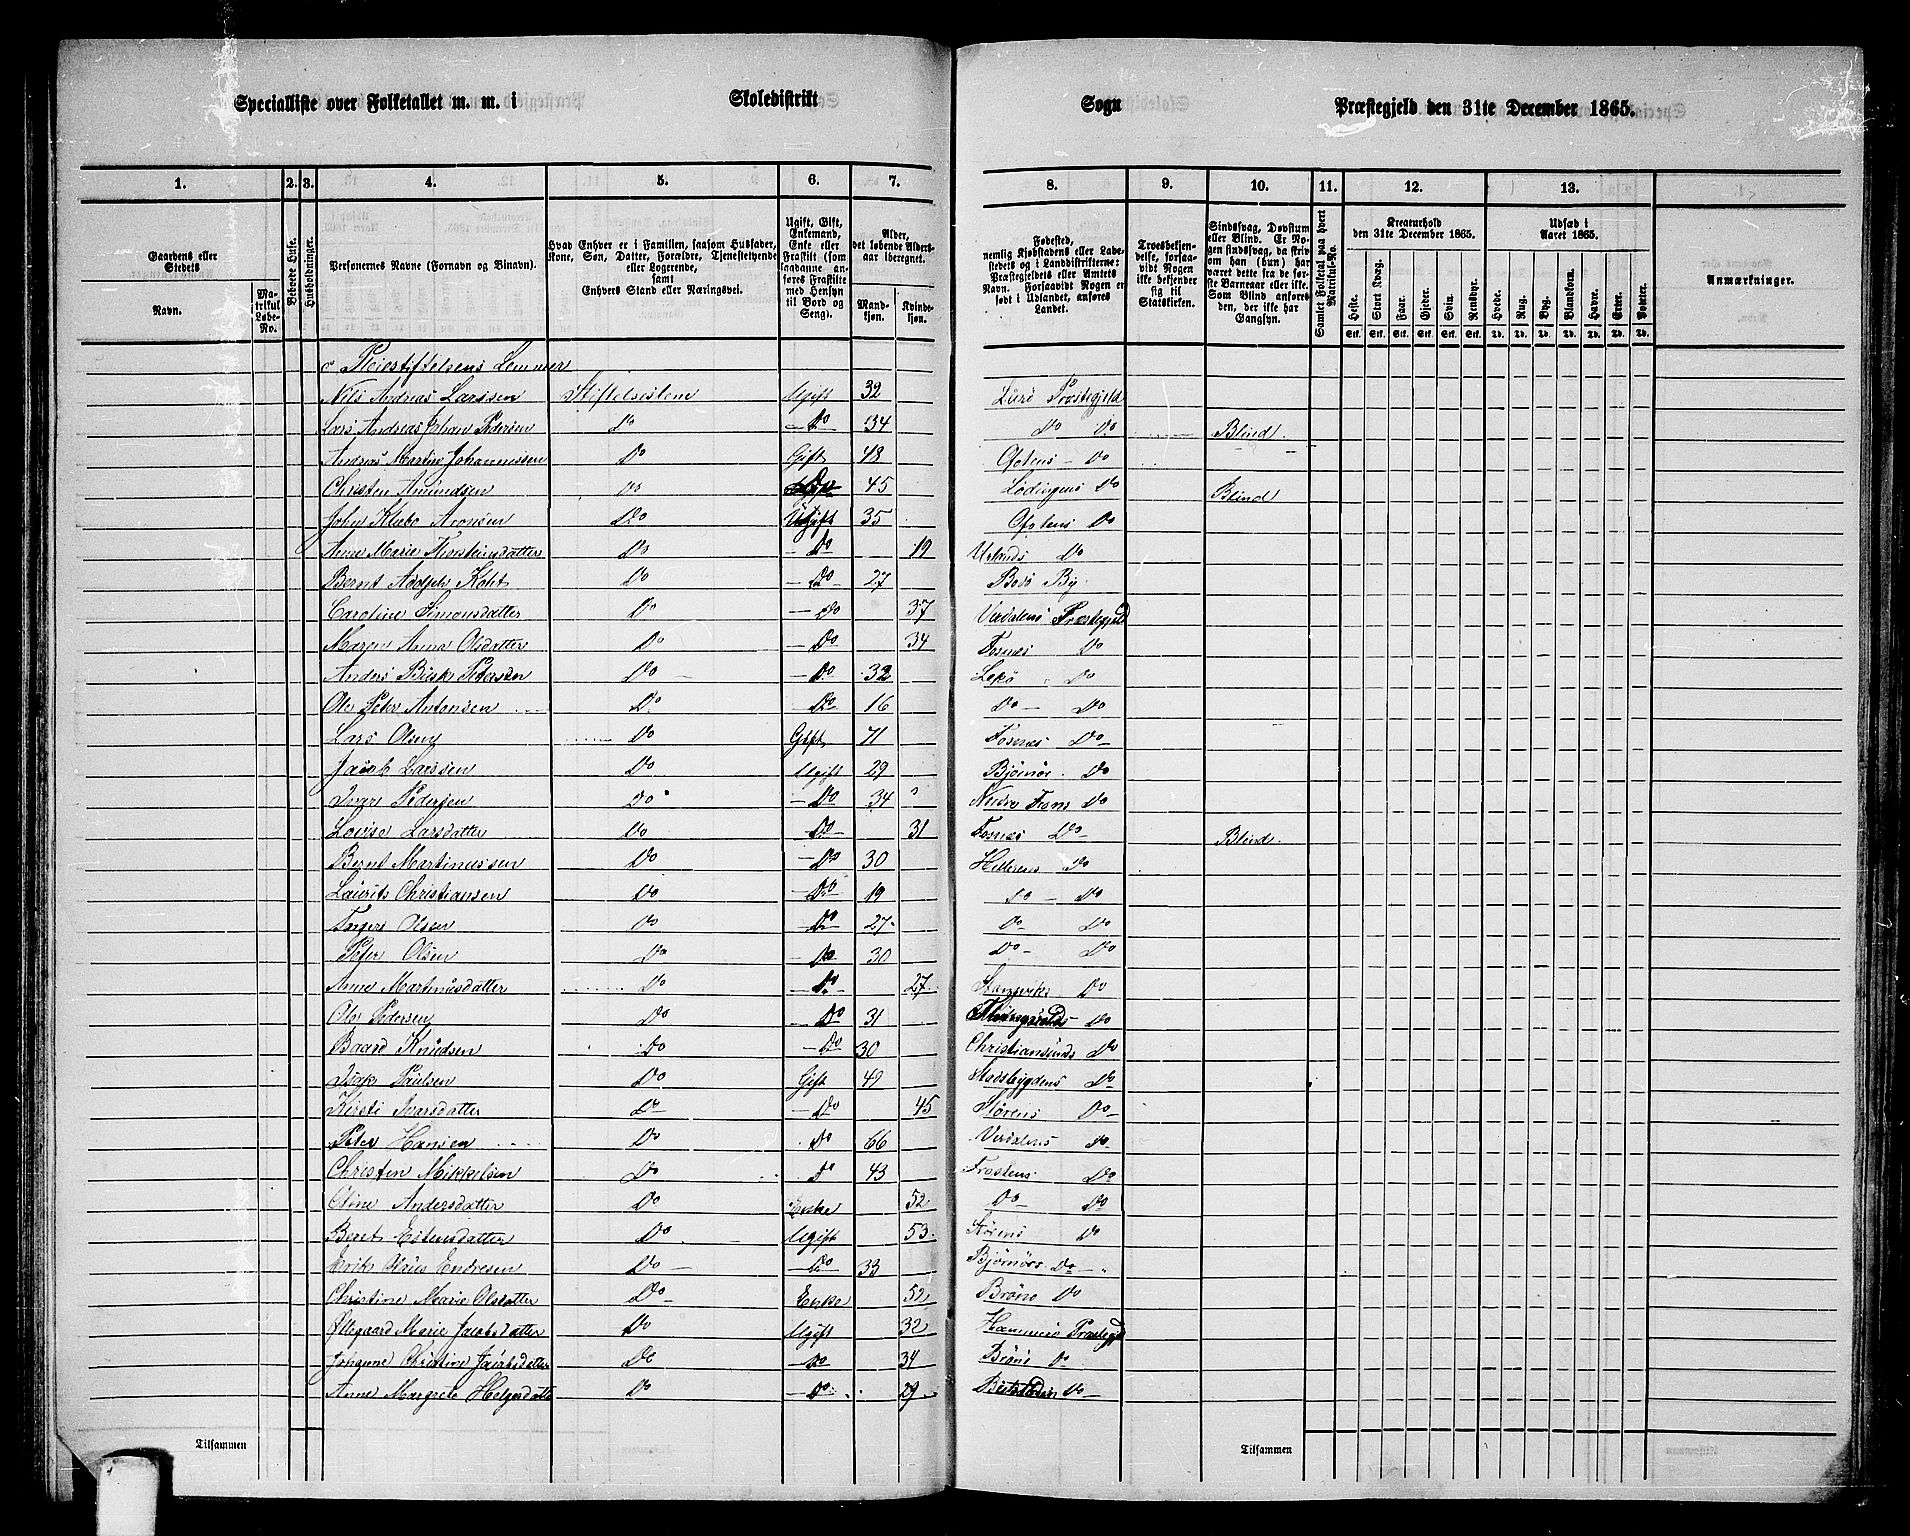 Specialliste over Folketallet m. m. i Skoledistrikt Sogn Præstegjeld den 31te December 1865.
1. 2. 3. 4. 5. 6. 7. 8. 9. 10. 11. 12. 13.
Gaardens eller Stedets
Navn.
Matrikul Løbe-No.
Beboede Huse.
Husholdninger.
Personernes Navne (Fornavn og Binavn).
Hvad Enhver er i Familien, saasom Husfader, Kone, Søn, Datter, Forældre, Tjenestetyende eller Logerende, samt Enhvers Stand eller Næringsvei.
Ugift, Gift, Enkemand, Enke eller Fraskilt (som saadanne anføres Fraskilte med Hensyn til Bord og Seng).
Alder, det løbende Alders-aar iberegnet.
Mand-kjøn. Kvinde-kjøn.
Fødested, nemlig Kjøbstadens eller Ladestedets og i Landdistrikterne: Præstegjeldets eller Amtets Navn. Forsaavidt Nogen er født i Udlandet, anføres Landet.
Troesbekjendelse, forsaavidt Nogen ikke bekjender sig til Statskirken.
Sindssvag, Døvstum eller Blind. Er Nogen sindssvag, da skrives om han (hun) har været dette fra de første Barneaar eller ikke. Som Blind anføres den, der ikke har Gangsyn.
Samlet Folketal paa hvert Matrikul-No.
Kreaturhold den 31te December 1865.
Heste. Stort Kvæg. Faar. Gjeder. Svin. Rensdyr.
Udsæd i Aaret 1865.
Hvede. Rug. Byg. Blandkorn. Havre. Erter. Poteter.
Anmærkninger.
c Pleiestiftelsens Lemmer
Nils Andreas Larssen Stiftelseslem Ugift 32 Lurö Præstegjeld
Lars Andreas Johan Pedersen Do Do 34 Do Do Blind
Andreas Martin Johannessen Do Gift 48 Ofotens Do
Christen Amundsen Do Do 45 Lødingens Do Blind
John Klæbo Aronsen Do Ugift 35 Ofotens Do
Anne Marie Thorsteinsdatter Do Do 19 Urlands Do
Bernt Adolph Koht Do Do 27 Bodö By
Caroline Simonsdatter Do Do 37 Verdalens Præstegjeld
Maren Anna Olsdatter Do Do 34 Fosnæs Do
Anders Busk Pedersen Do Do 32 Lekö Do
Ole Peter Antonsen Do Do 16 Do Do
Lars Olsen Do Gift 71 Fosnæs Do
Jacob Larssen Do Ugift 29 Bjørnör Do
Iver Pedersen Do Do 34 Nedre Do
Lovise Larsdatter Do Do 31 Fosnæs Do Blind
Bernt Martinussen Do Do 30 Hitterens Do
Laurits Christiansen Do Do 19 Do Do
Olsen Do Do 27 Do Do
Peter Olsen Do Do 30 Do Do
Anne Martinusdatter Do Do 27 Stangviks Do
Ole Pedersen Do Do 31 Do
Baard Knudsen Do Do 30 Christiansunds Do
Isak Paulsen Do Gift 49 Stadsbygdens Do
Kirsti Ivarsdatter Do Do 45 Størens Do
Peter Hansen Do Do 66 Verdalens Do
Christen Mikkelsen Do Do 43 Frostens Do
Oline Andersdatter Do Enke 52 Do Do
Beret Estensdatter Do Ugift 53 Størens Do
Erik Olaus Endresen Do Do 33 Bjørnörs Do
Christine Marie Olsdatter Do Enke 52 Brönö Do
Ollegaard Marie Jacobsdatter Do Ugift 32 Hammerö Præstegjd
Johanne Christine Jacobsdatter Do Do 34 Brönö Do
Anne Margrete Helgesdatter Do Do 29 Beitstaden Do
Tilsammen Tilsammen